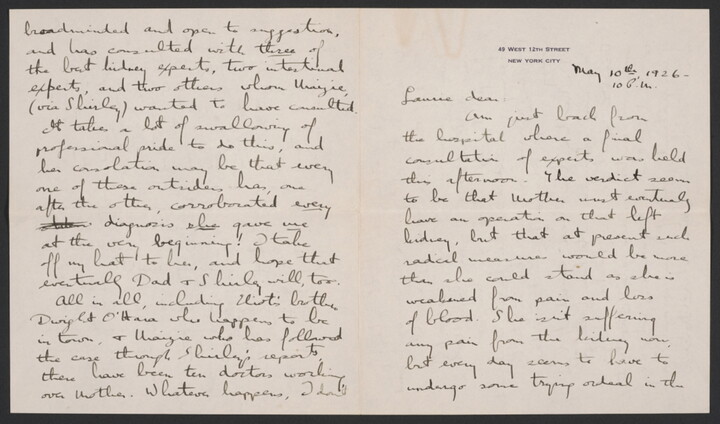 broadminded and open to suggestion,
and has consulted with three of
the best kidney experts, two intestinal
experts, and two others whom Maizie,
(via Shirley) wanted to have consulted.
It takes a lot of swallowing of
professional pride to do this, and
her consolation may be that every
one of these outsiders has, one
after the other, corroborated every
diagnosis she gave me
at the very beginning! I take
off my hat to her, and hope that
eventually Dad & Shirley will, too.
All in all, including Eliot's brother
Dwight O'Hara who happens to be
in town, & Maizie who has followed
the case through Shirley's reports,
there have been ten doctors working
over Mother. Whatever happens, I don't
49 WEST 12TH STREET
NEW YORK CITY
May 10th 1926-
10 P.M.
Laurie dear:
Am just back from
the hospital where a final
consultation of experts was held
this afternoon. The verdict seems
to be that Mother must eventually
have an operation on that left
kidney, but that at present such
radical measures would be more
than she could stand as she is
weakened from pain and loss
of blood. She isn't suffering
any pain from the kidney now,
but every day seems to have to
undergo some trying ordeal in the